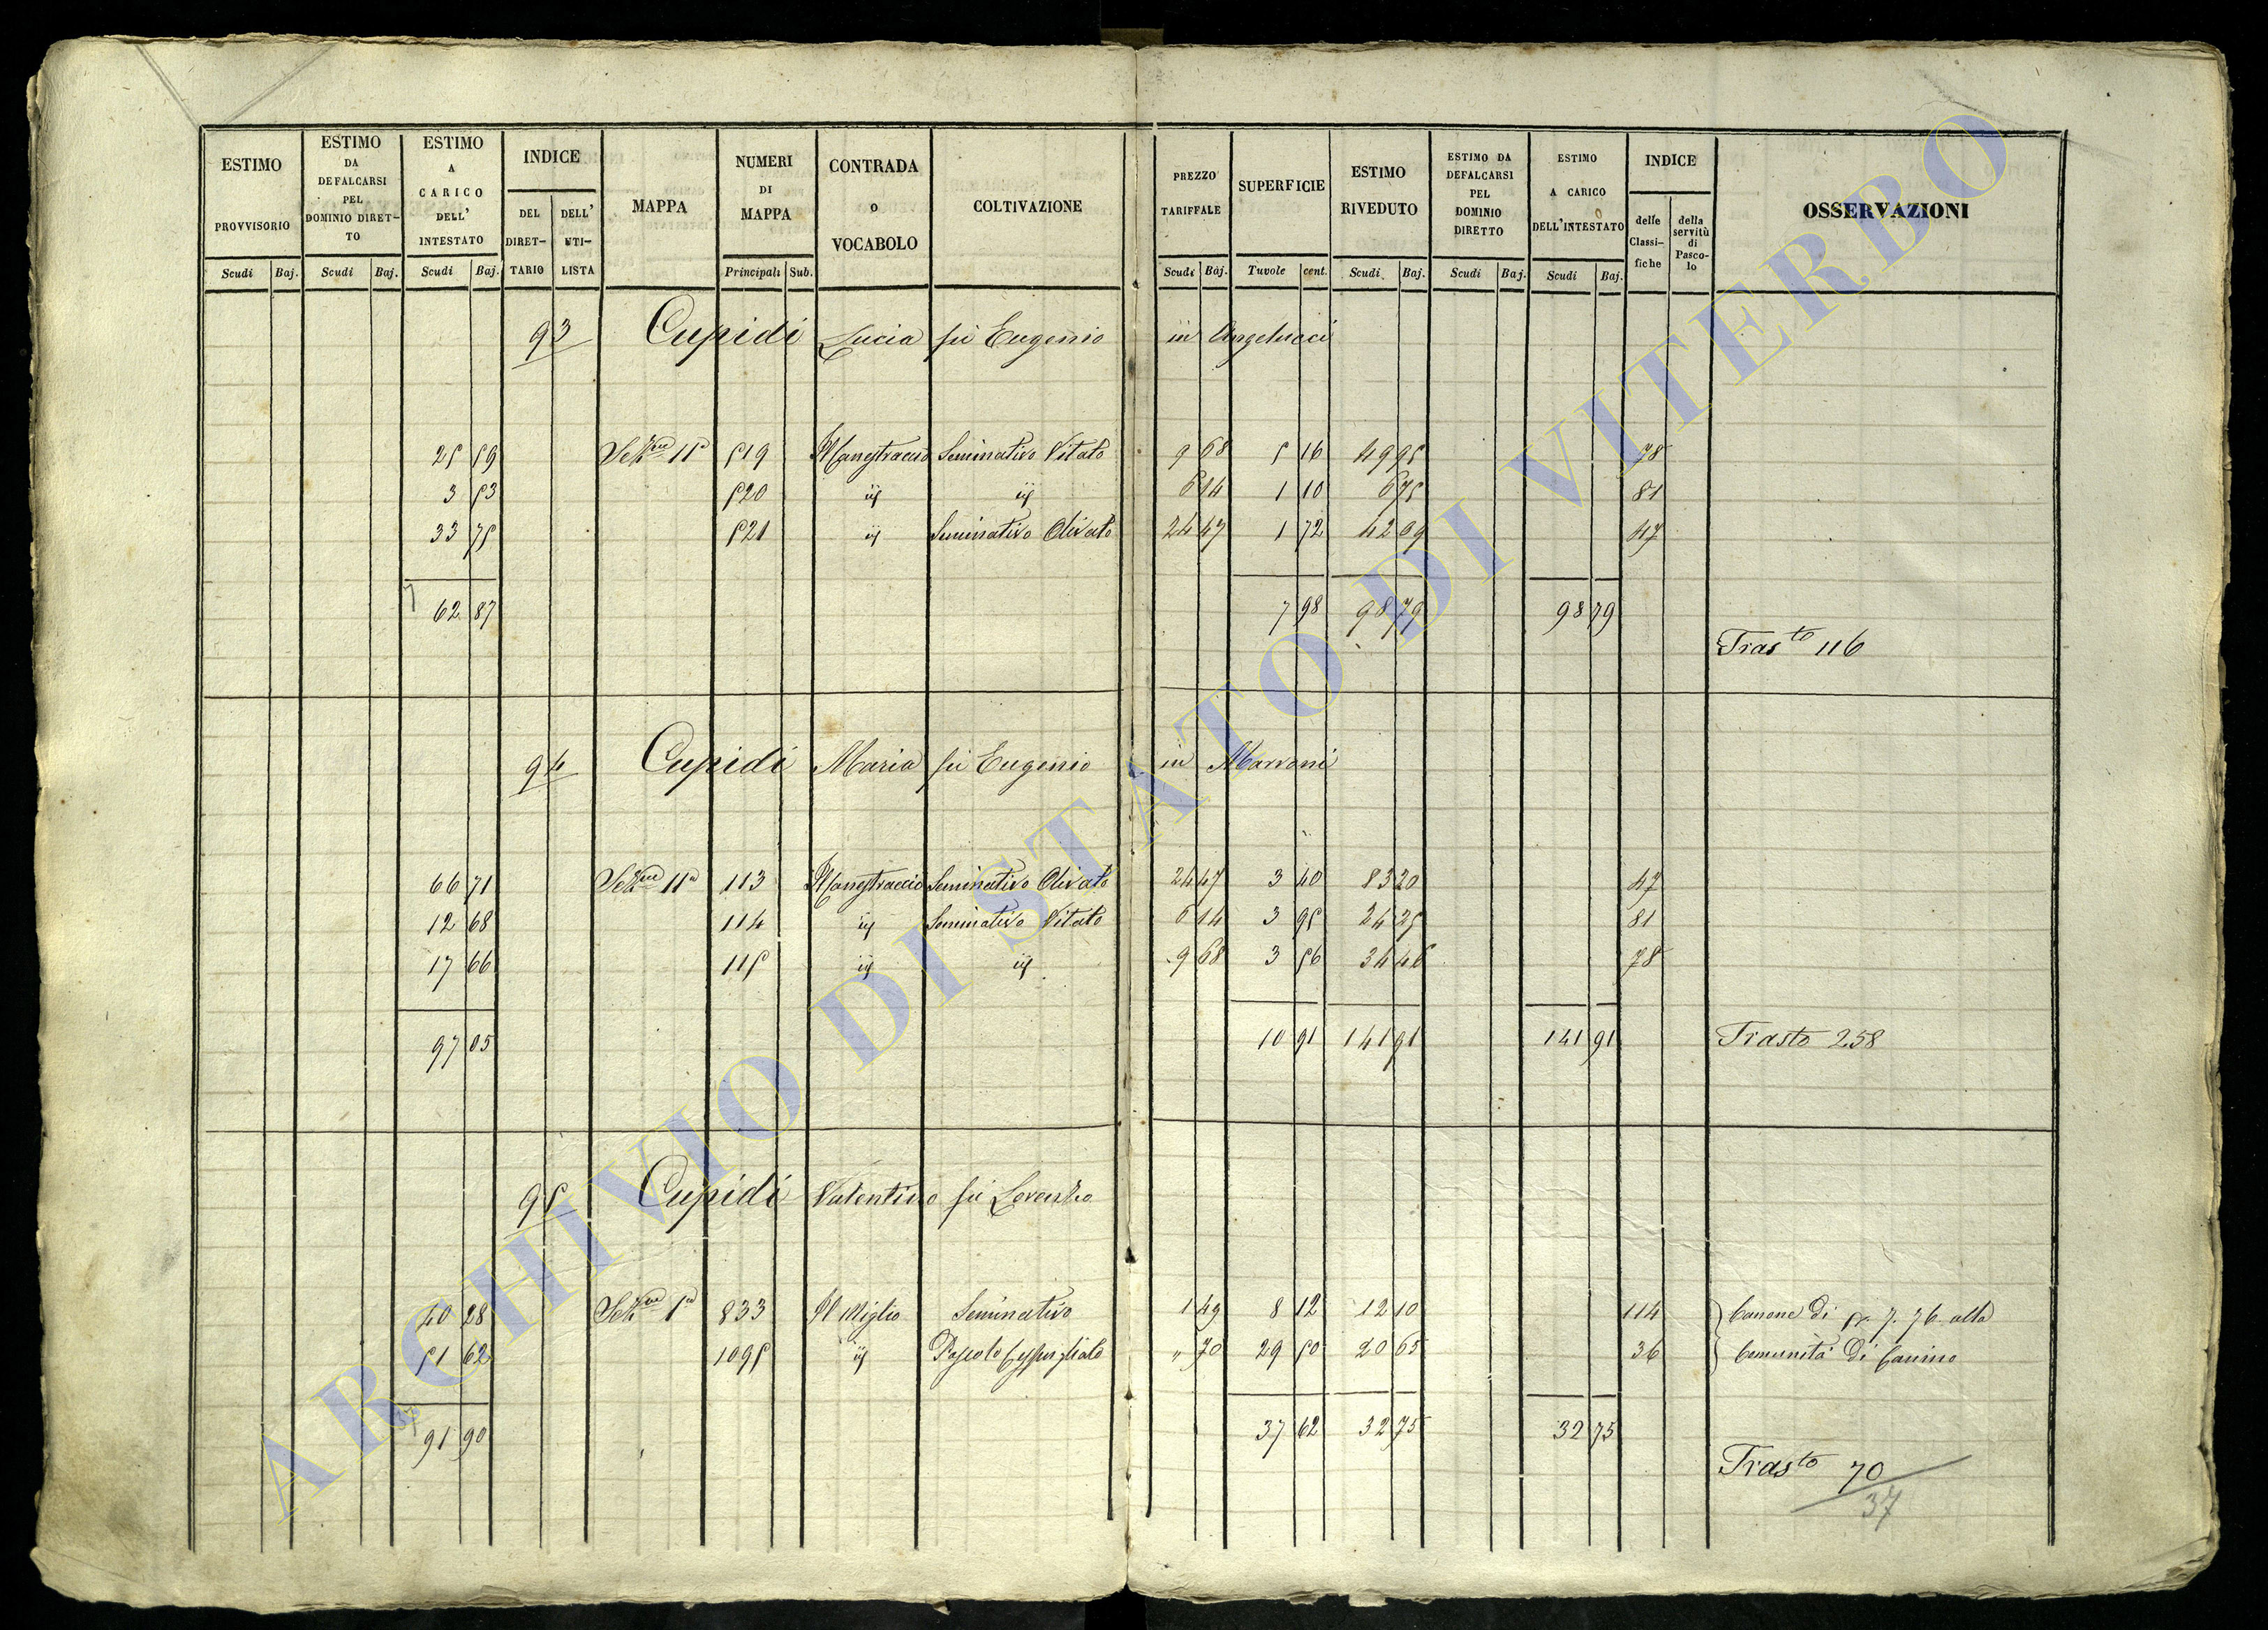 ESTIMO PROVVISORIO Scudi Baj.
ESTIMO DA DEFALCARSI PEL DOMINIO DIRET-TO Scudi Baj.
ESTIMO A CARICO DELL' INTESTATO Scudi Baj.
INDICE DEL DIRET-TARIO DELL' UTI-LISTA
MAPPA
NUMERI DI MAPPA Principali Sub.
CONTRADA O VOCABOLO
COLTIVAZIONE
PREZZO TARIFFALE Scudi Baj.
SUPERFICIE Tavole cent.
ESTIMO RIVEDUTO Scudi Baj.
ESTIMO DA DEFALCARSI PEL DOMINIO DIRETTO Scudi Baj.
ESTIMO A CARICO DELL'INTESTATO Scudi Baj.
INDICE delle Classi-fiche della servitù di Pasco-lo
OSSERVAZIONI
93 Cupidi Lucia fu Eugenio in Angelucci
25 59 Sezne 11a 519 Seminativo Vitato 9 68 5 16 49 95 78
3 53 520 id id 6 14 1 10 6 75 81
33 75 521 id Seminativo Olivato 24 47 1 72 42 09 47
62 87 7 98 98 79 98 79
Trasto 116
94 Cupidi Maria fu Eugenio in Marroni
66 71 Sezne 11a 113 Seminativo Olivato 24 47 3 40 83 20 47
12 68 114 id Seminativo Vitato 6 14 3 95 24 25 81
17 66 115 id id 9 68 3 56 34 46 78
97 05 10 91 141 91 141 91 Trasto 258
95 Cupidi Valentino fu Lorenzo
40 28 Sezne 1a 833 Il Miglio Seminativo 1 49 8 12 12 10 114 Canone di sc. 7. 76 alla
51 62 1095 id Pascolo Cespugliato " 70 29 50 20 65 36 Comunità di Canino
91 90 37 62 32 75 32 75
Trasto 70
37
ARCHIVIO DI STATO DI VITERBO